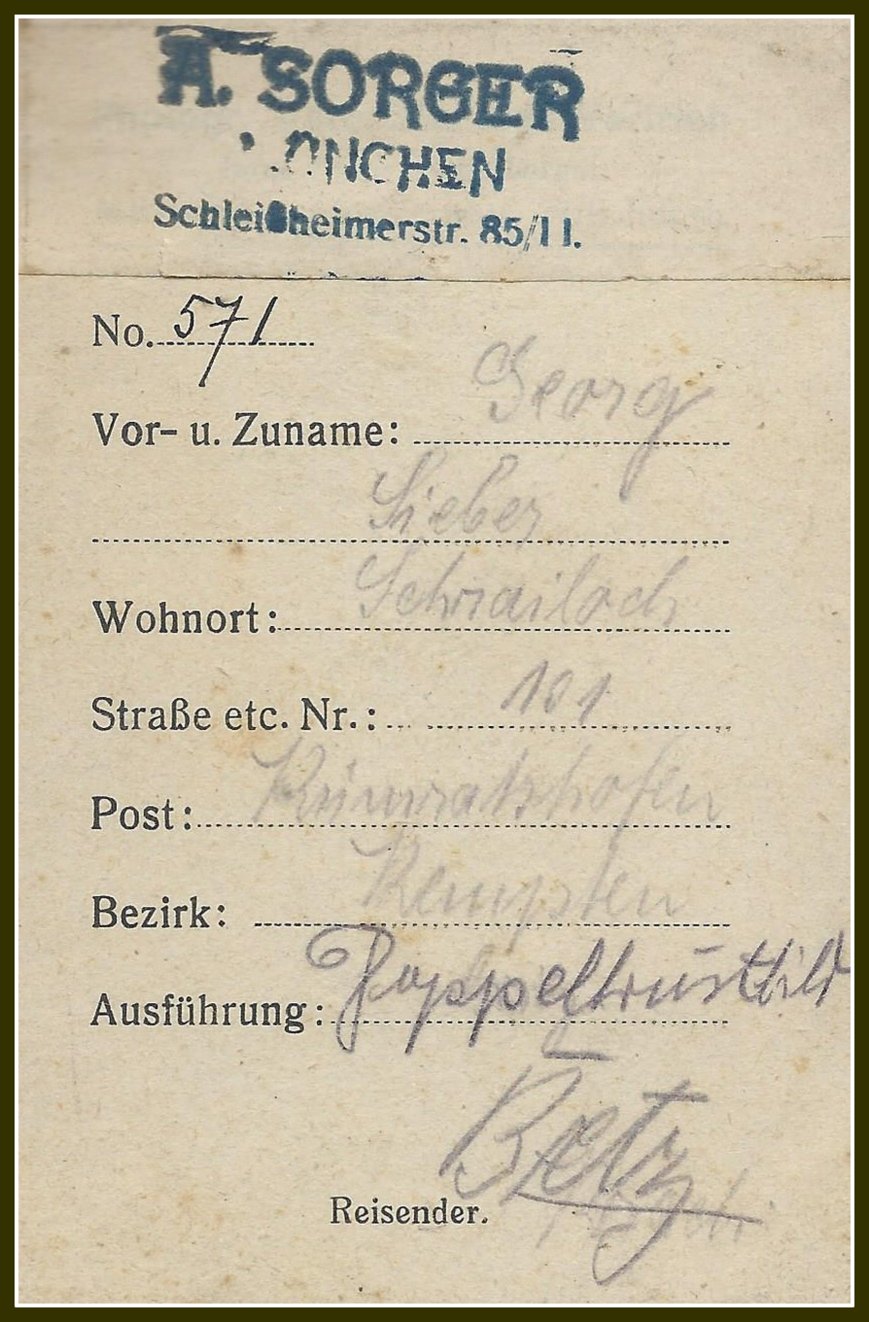 A. SORGER
MÜNCHEN
Schleißheimerstr. 85/II.
No. 571
Georg
Vor- u. Zuname:
Sieber
Wohnort: Schrailoch
Straße etc. Nr.: 101
Post:
Bezirk: Kempten
Ausführung: Doppelbrustbild
Betz
Reisender.